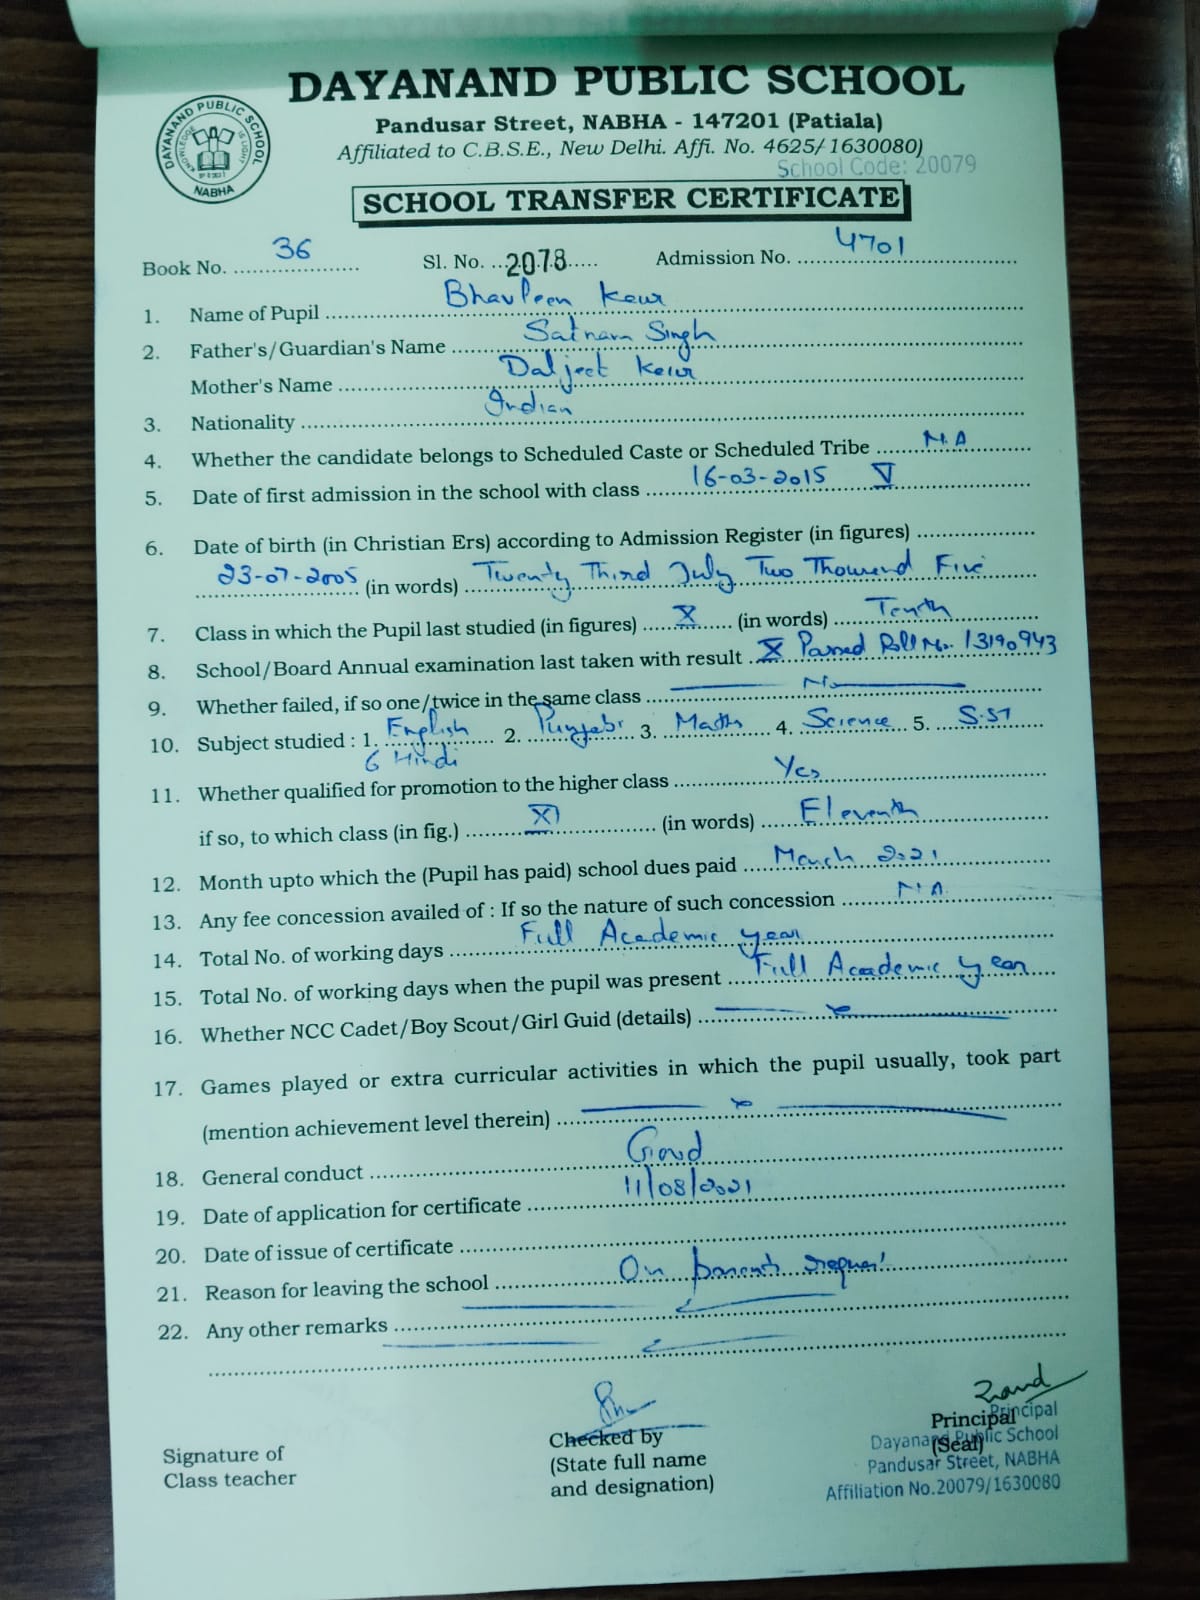 DAYANAND PUBLIC SCHOOL
Pandusar Street, NABHA - 147201 (Patiala)
Affiliated to C.B.S.E., New Delhi. Affi. No. 4625/1630080)
School Code: 20079
DAYANAND PUBLIC SCHOOL
KNOWLEDGE IS LIGHT
NABHA
SCHOOL TRANSFER CERTIFICATE
Book No. 36 Sl. No. 2078 Admission No. 4701
1. Name of Pupil Bhavleen Kaur
2. Father's/Guardian's Name Satnam Singh
Mother's Name Daljeet Kaur
3. Nationality Indian
4. Whether the candidate belongs to Scheduled Caste or Scheduled Tribe N.A
5. Date of first admission in the school with class 16-03-2015 V
6. Date of birth (in Christian Ers) according to Admission Register (in figures)
23-07-2005 (in words) Twenty Third July Two Thousand Five
7. Class in which the Pupil last studied (in figures) X (in words) Tenth
8. School/Board Annual examination last taken with result X Passed Roll No. 13190943
9. Whether failed, if so one/twice in the same class No
10. Subject studied : 1. English 2. Punjabi 3. Maths 4. Science 5. S.ST
6 Hindi
11. Whether qualified for promotion to the higher class Yes
if so, to which class (in fig.) XI (in words) Eleventh
12. Month upto which the (Pupil has paid) school dues paid March 2021
13. Any fee concession availed of : If so the nature of such concession N.A.
14. Total No. of working days Full Academic year
15. Total No. of working days when the pupil was present Full Academic year
16. Whether NCC Cadet/Boy Scout/Girl Guid (details)
17. Games played or extra curricular activities in which the pupil usually, took part
(mention achievement level therein)
18. General conduct Good
19. Date of application for certificate 11/08/2021
20. Date of issue of certificate
21. Reason for leaving the school On parents request
22. Any other remarks
Signature of
Class teacher
Checked by
(State full name
and designation)
Principal
(Seal)
Principal
Dayanand Public School
Pandusar Street, NABHA
Affiliation No.20079/1630080